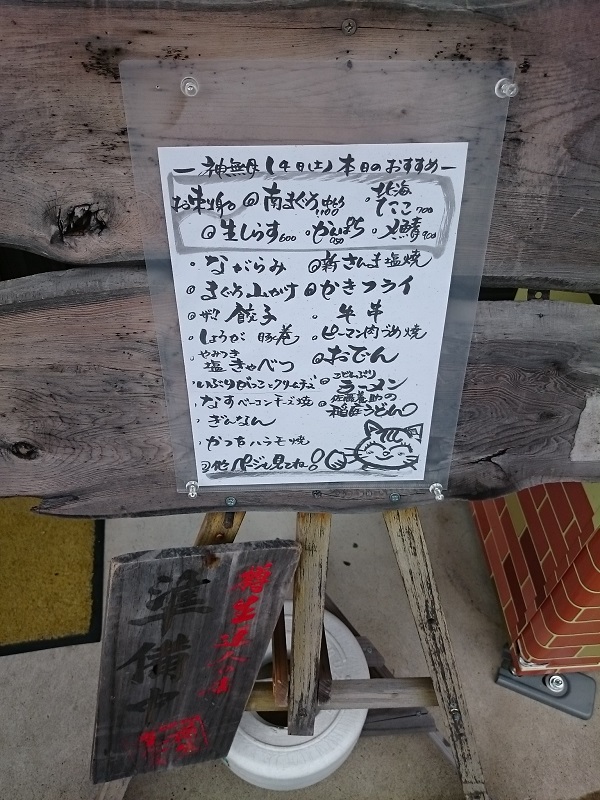 ー神無月14日(土)本日のおすすめー
お刺身
◎南まぐろ中とり1100
・北海だこ700
◎生しらす600
・かんぱち750
・〆鯖900
・ながらみ
◎新さんま塩焼
◎まぐろ山かけ
◎かきフライ
餃子
・牛串
・しょうが豚巻
・ピーマン肉づめ焼
・やみつき塩きゃべつ
◎おでん
・いぶりがっことクリームチーズ
◎こどんぶりラーメン
・なすベーコンチーズ焼
◎佐藤養助の稲庭うどん
・ぎんなん
・かつおハラモ焼
◎他ページも見てね!
準備中